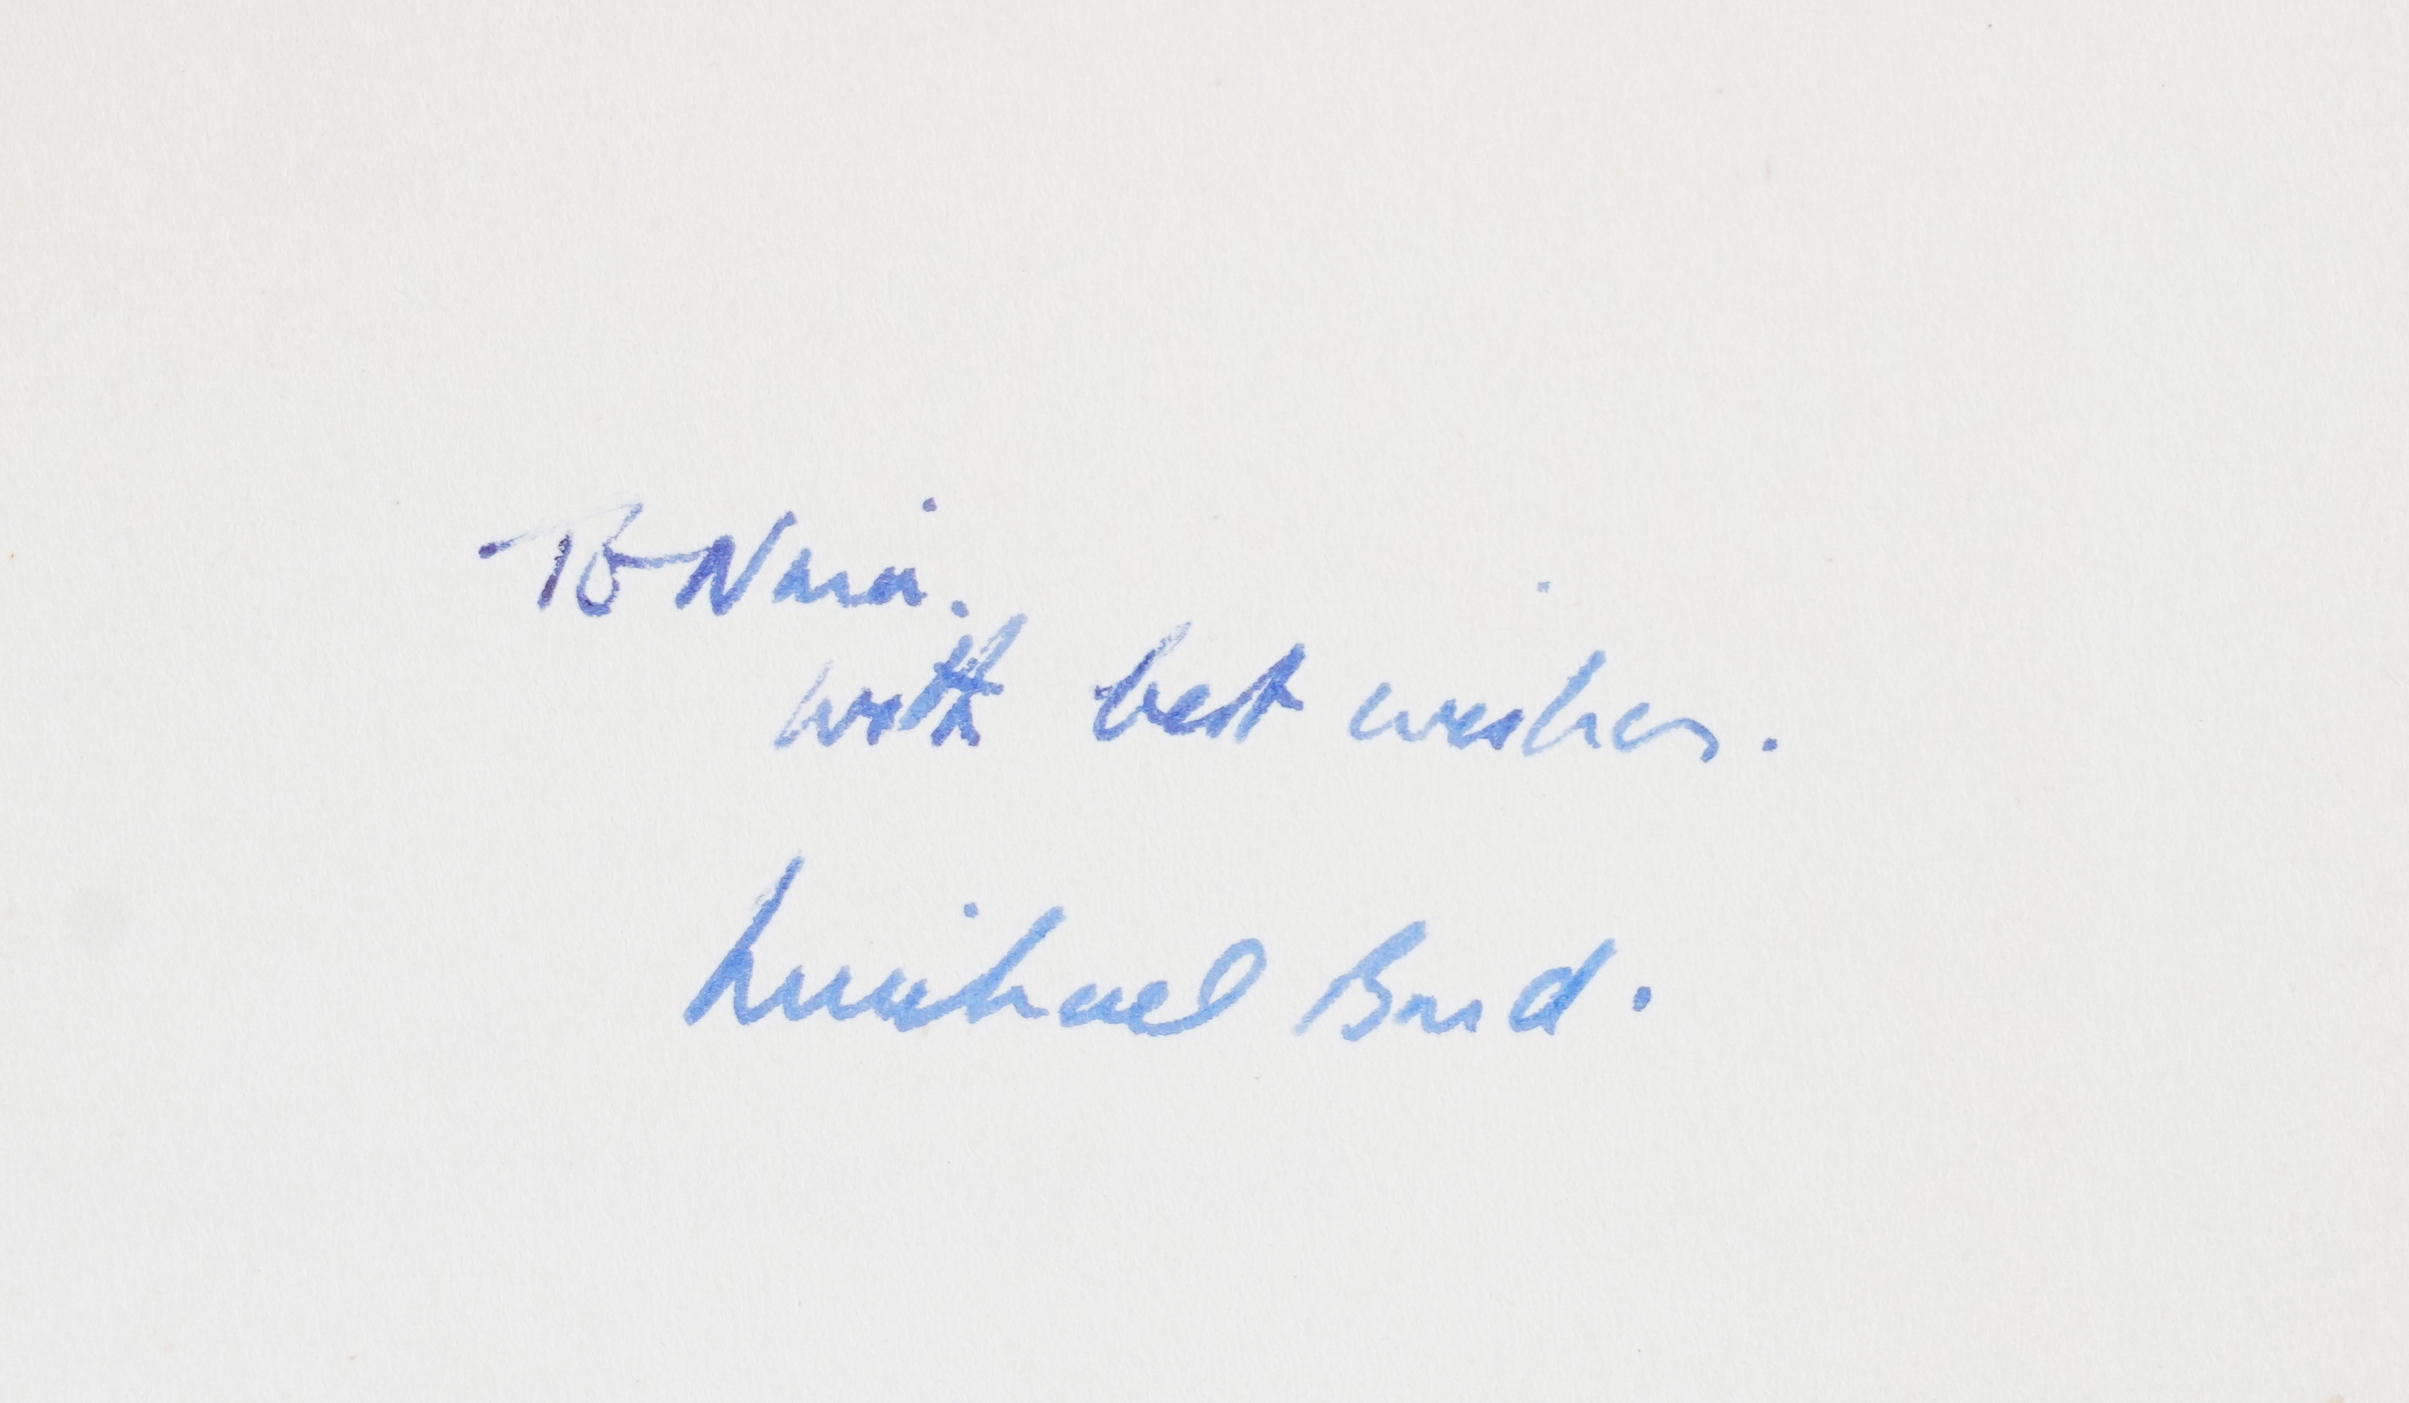 To
with best wishes.
Michael Bond.